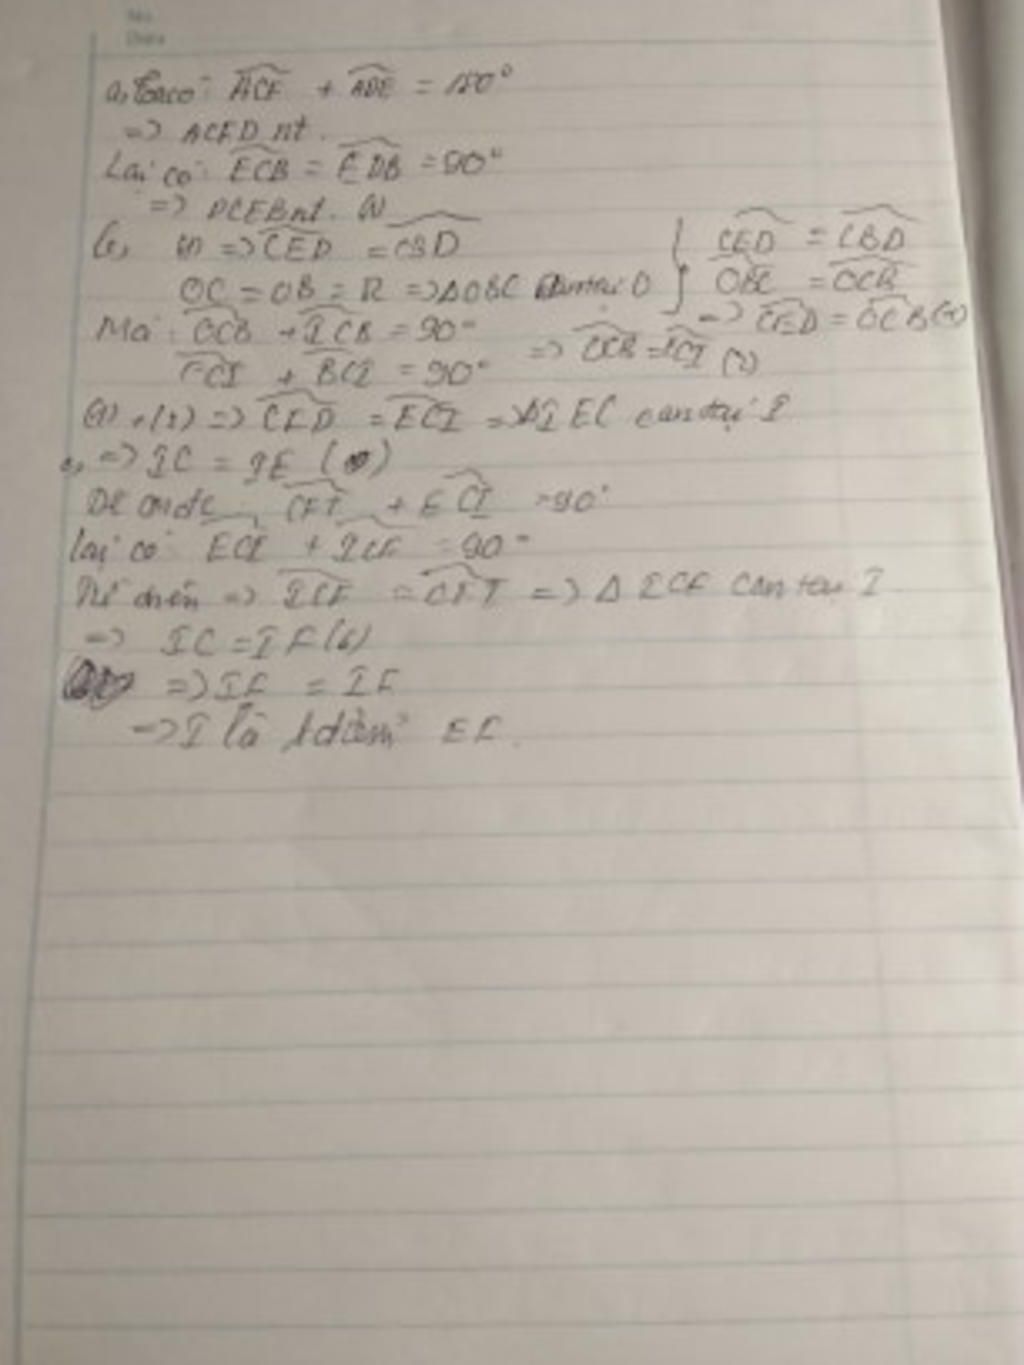 No.
Date
a, Ta có: ACF + ADE = 180°
=> ACFD nt.
Lại có: ECB = EDB = 90°
=> DCEB nt. (1)
(1) => CED = CBD
OC = OB = R => ΔOBC cân tại O
} CED = CBD
OBC = OCB
=> CED = OCB (1)
Mà: OCB + ICB = 90°
ECI + BCI = 90°
=> OCB = ECI (2)
(1), (2) => CED = ECI => ΔIEC cân tại I
=> IC = IE
CFI + ECI = 90°
Lại có: ECI + ICF = 90°
=> ICF = CFI => Δ ICF cân tại I
=> IC = IF
=> IE = IF
=> I là t điểm EF.